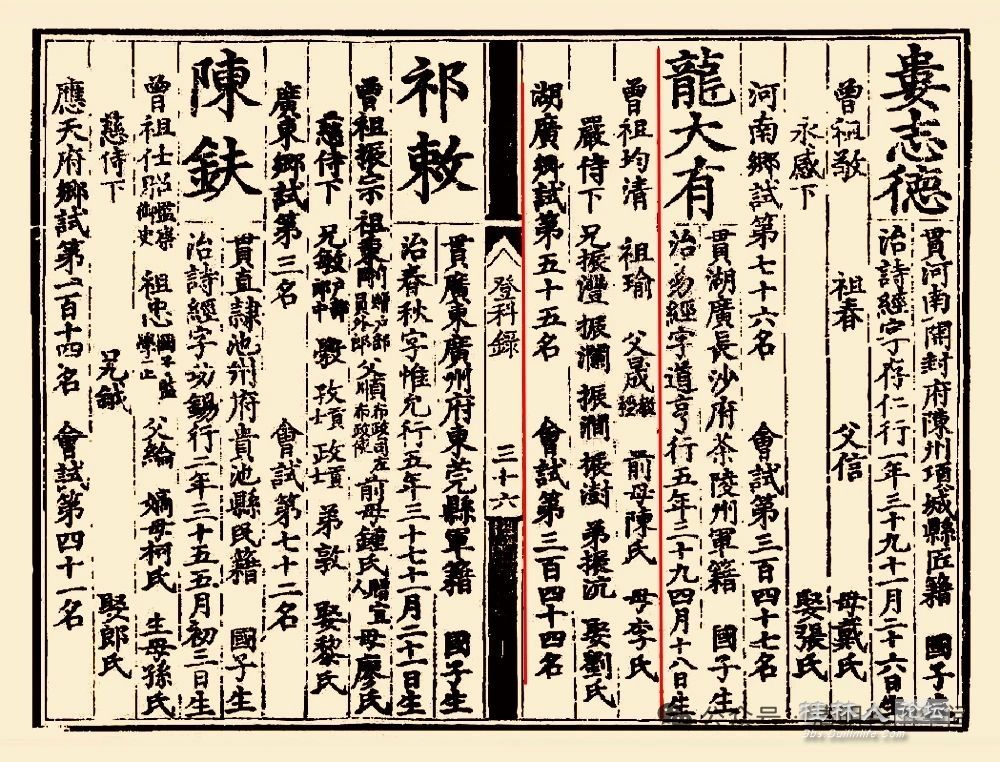 婁志德
貫河南開封府陳州項城縣匠籍 國子生
治詩經字存仁行一年三十九十一月二十六日生
曾祖敬 祖春 父信 母戴氏
永感下 娶張氏
河南鄉試第七十六名 會試第三百四十七名
龍大有
貫湖廣長沙府茶陵州軍籍 國子生
治易經字道亨行五年二十九四月十八日生
曾祖均清 祖瑜 父晟教授 前母陳氏 母李氏
嚴侍下 兄振灃 振瀾 振澗 振澍 弟振沅 娶劉氏
湖廣鄉試第五十五名 會試第三百四十四名
登科録 三十六
祁敕
貫廣東廣州府東莞縣軍籍 國子生
治春秋字惟允行五年三十七十一月二十一日生
曾祖振宗 祖東剛贈戶部員外郎 父順布政司左布政使 前母鍾氏贈宜人 母廖氏
慈侍下 兄敏戶部郎中 斅 孜貢士 政貢士 弟敦 娶黎氏
廣東鄉試第三名 會試第七十二名
陳鈇
貫直隸池州府貴池縣民籍 國子生
治詩經字功錫行二年三十五五月初三日生
曾祖仕 監察御史 祖忠國子監學正 父綸 嫡母柯氏 生母孫氏
慈侍下 兄鉞 娶郎氏
應天府鄉試第一百十四名 會試第四十一名
公众号
桂林人论坛
bbs.Guilinlife.com